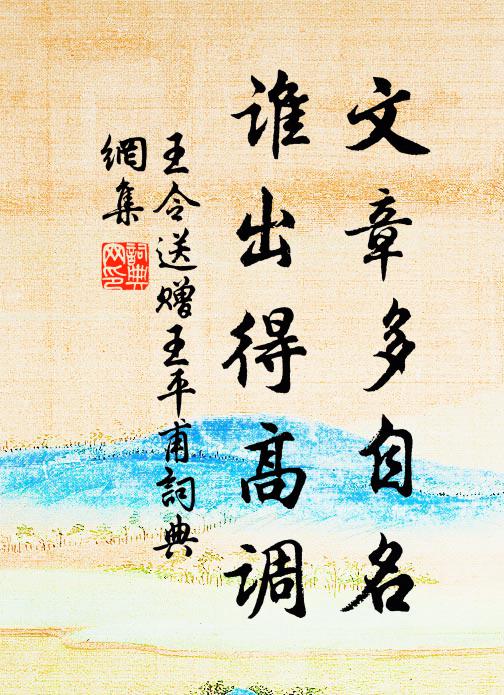 文章多自名
谁出得高调
王令送赠王平甫詞典
網集
詞典
网印